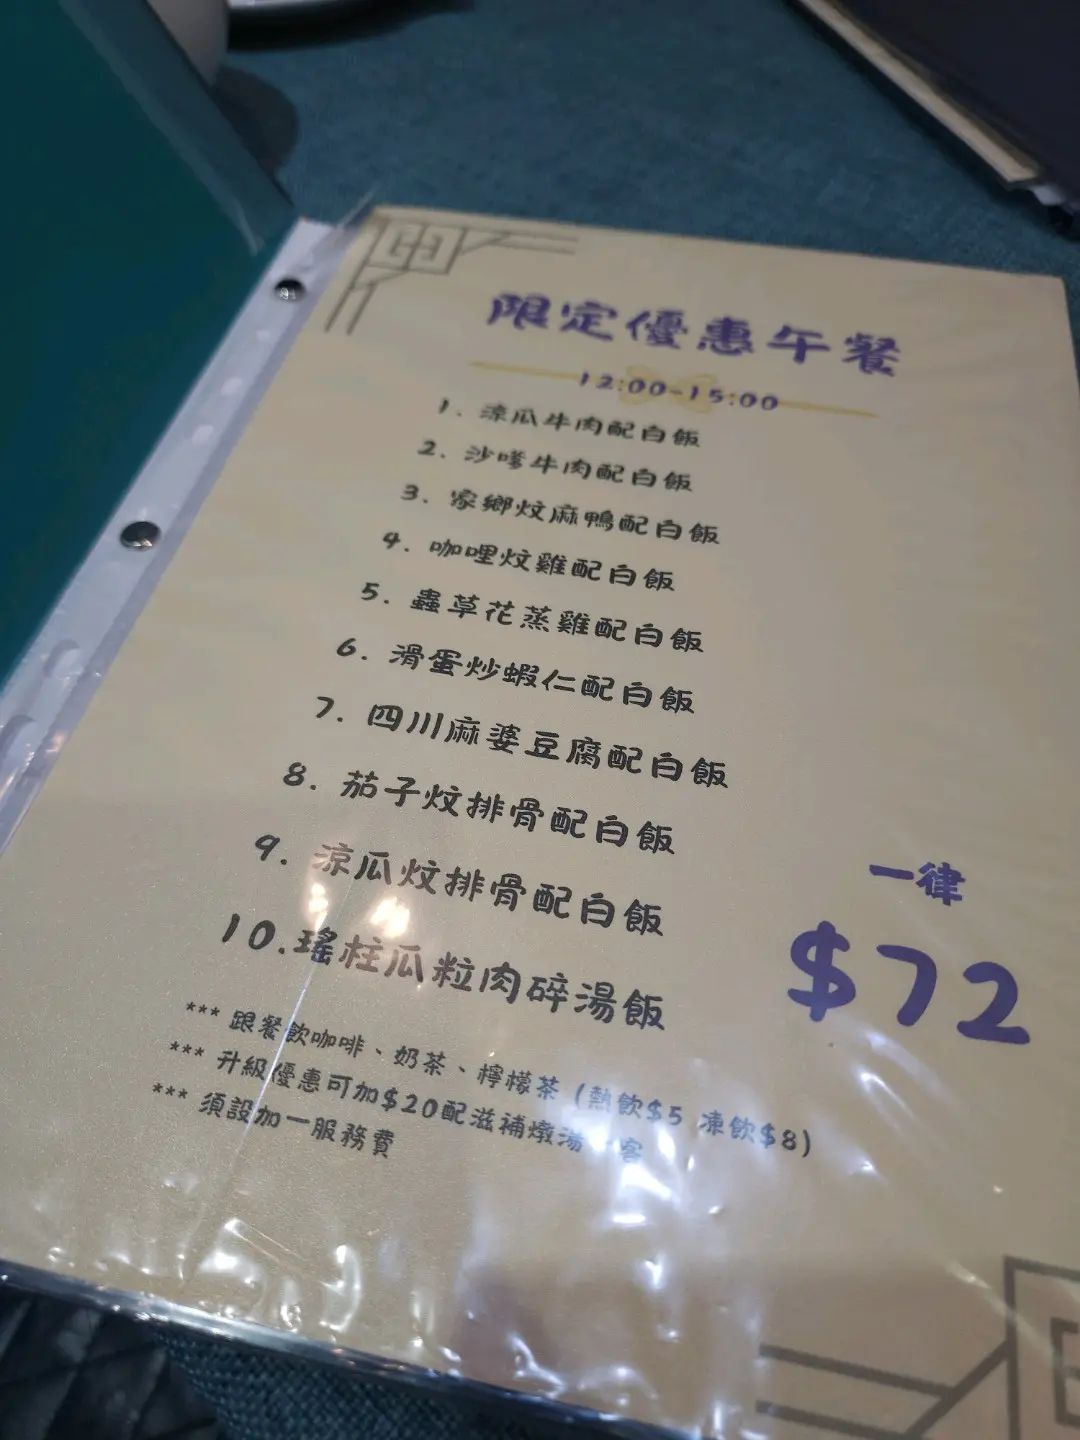 限定優惠午餐
12:00-15:00
1. 涼瓜牛肉配白飯
2. 沙嗲牛肉配白飯
3. 家鄉炆麻鴨配白飯
4. 咖哩炆雞配白飯
5. 蟲草花蒸雞配白飯
6. 滑蛋炒蝦仁配白飯
7. 四川麻婆豆腐配白飯
8. 茄子炆排骨配白飯
9. 涼瓜炆排骨配白飯
10.瑤柱瓜粒肉碎湯飯
一律
$72
*** 跟餐飲咖啡、奶茶、檸檬茶 (熱飲$5 凍飲$8)
*** 升級優惠可加$20配滋補燉湯 客
*** 須設加一服務費